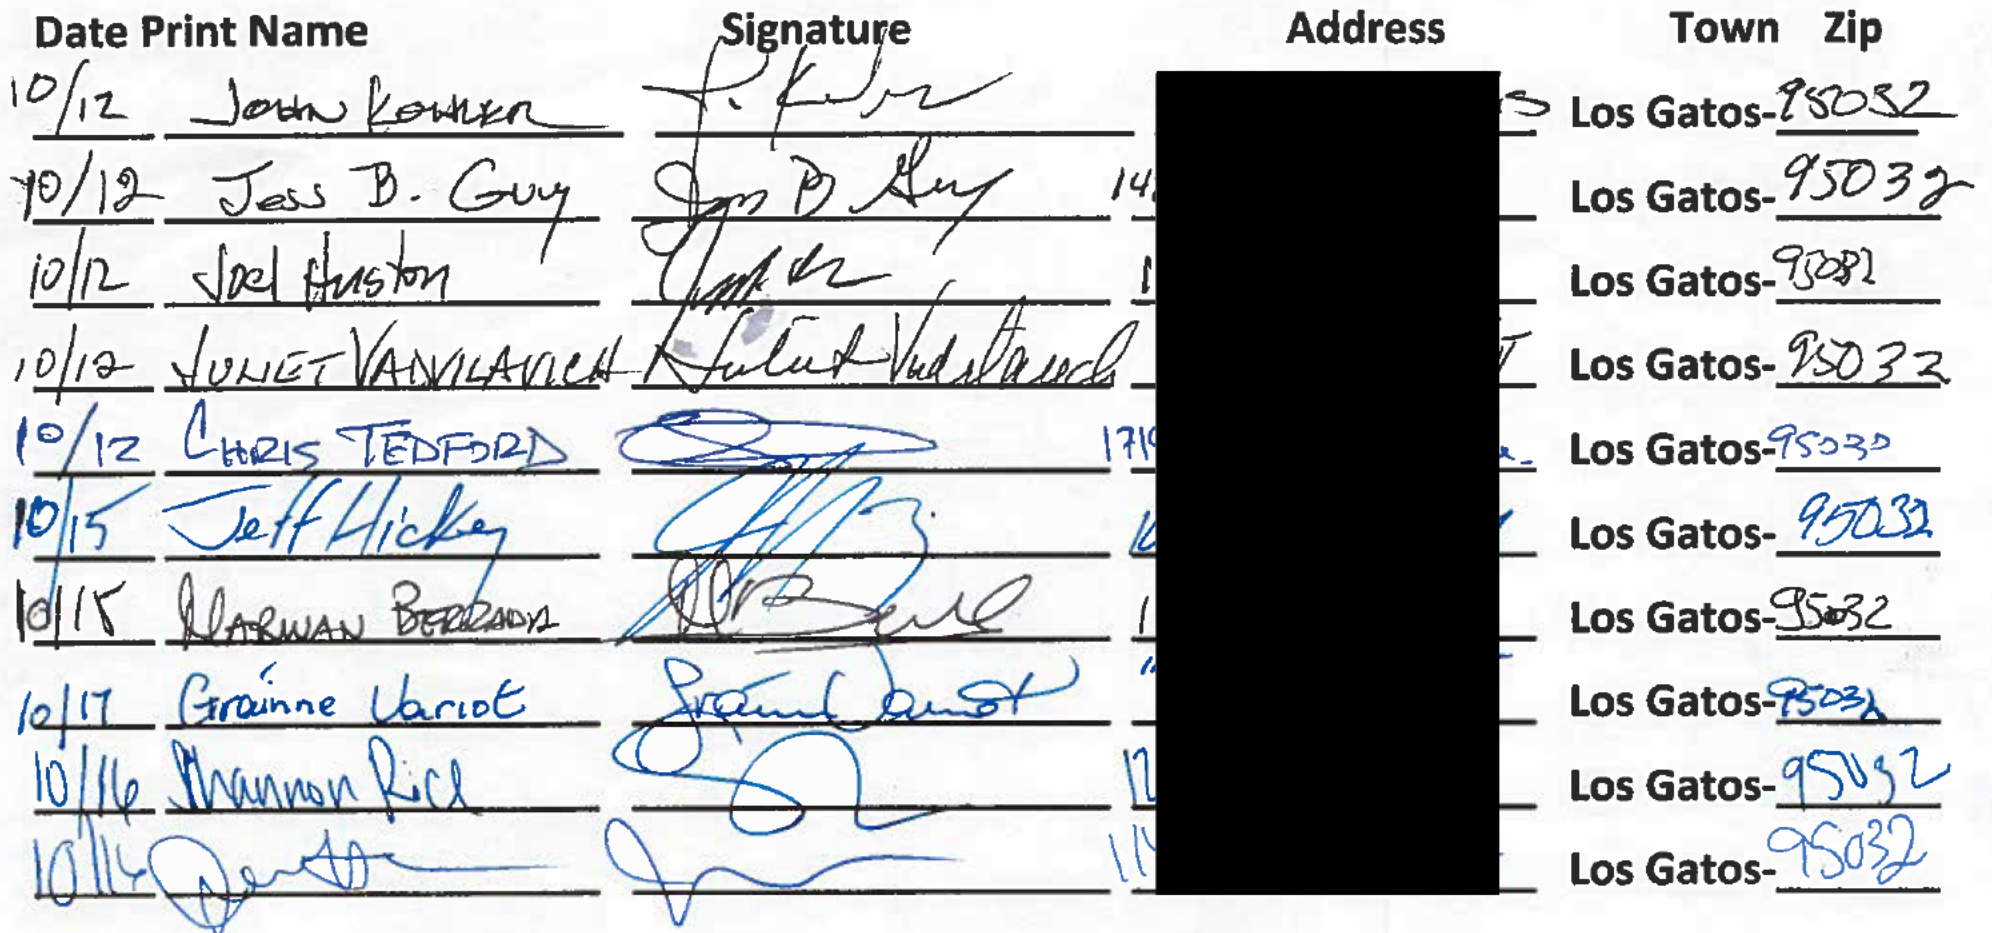 Date Print Name Signature Address Town Zip
10/12 John S Los Gatos-95032
10/12 Jess B. Guy Jess B Guy 14 Los Gatos-95032
10/12 Joel Huston 1 Los Gatos-95032
10/12 JULIET VADVILAVICH Juliet 1 Los Gatos-95032
10/12 CHRIS TEDFORD 1719 Los Gatos-95030
10/15 Jeff Hickey Los Gatos-95032
10/15 MARWAN BERRADA 1 Los Gatos-95032
10/17 Gráinne Variot Gráinne Variot Los Gatos-95032
10/16 Shannon Rice 12 Los Gatos-95032
10/16 Los Gatos-95032